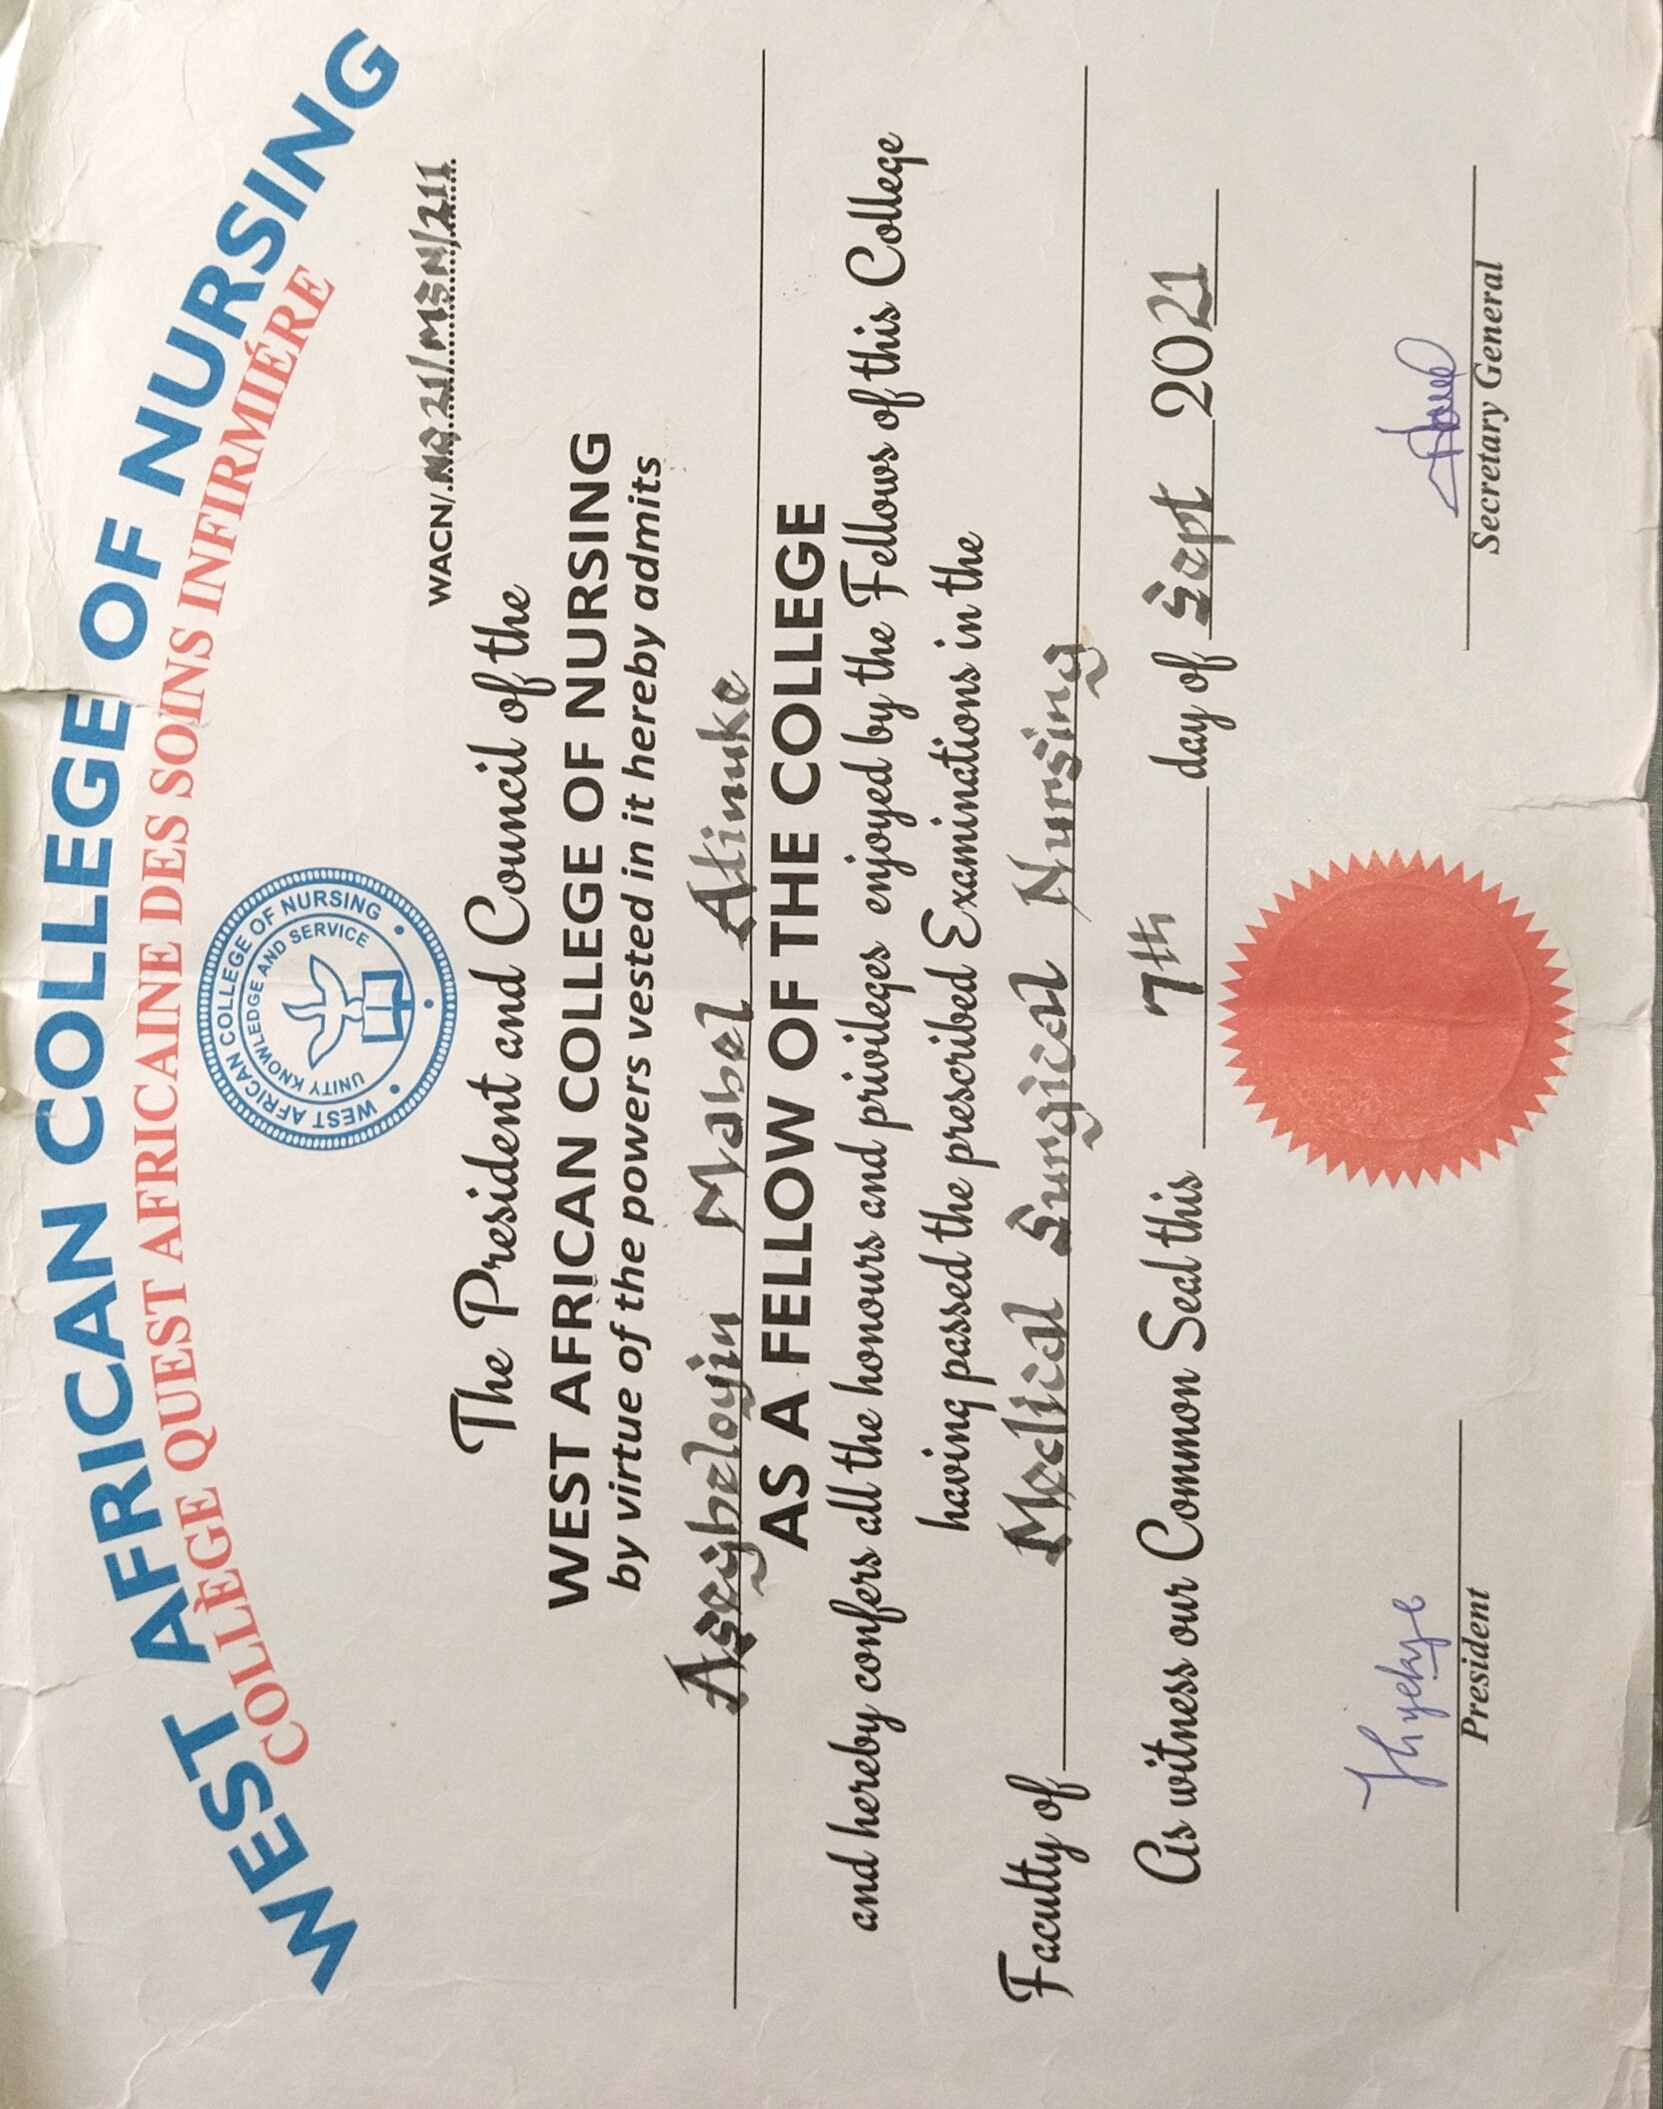 WEST AFRICAN COLLEGE OF NURSING
COLLÈGE QUEST AFRICAINE DES SOINS INFIRMIÉRE
WEST AFRICAN COLLEGE OF NURSING
UNITY KNOWLEDGE AND SERVICE
WACN/NG21/MSN/211
The President and Council of the
WEST AFRICAN COLLEGE OF NURSING
by virtue of the powers vested in it hereby admits
Mabel Atinuke
AS A FELLOW OF THE COLLEGE
and hereby confers all the honours and privileges enjoyed by the Fellows of this College
having passed the prescribed Examinations in the
Faculty of Medical Surgical Nursing
As witness our Common Seal this 7th day of Sept 2021
President
Secretary General